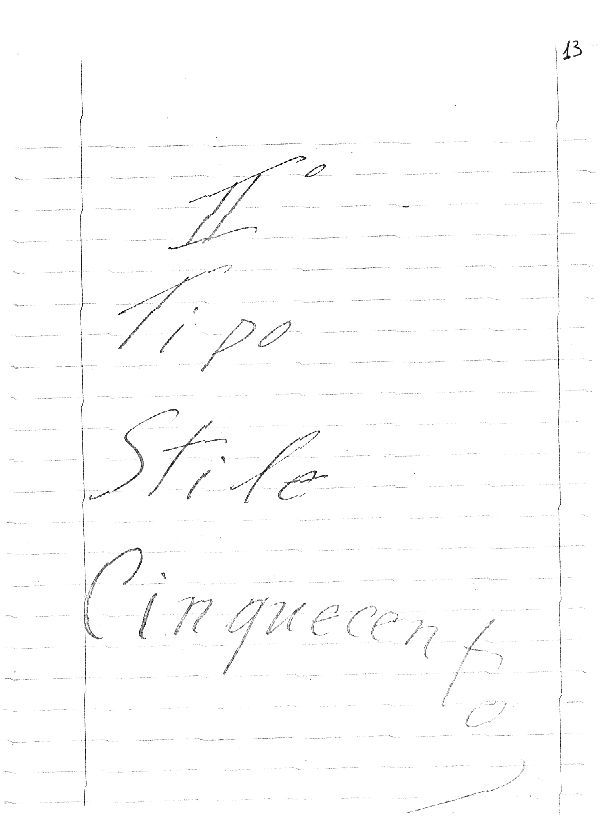 13
II°
Tipo
Stile
Cinquecento